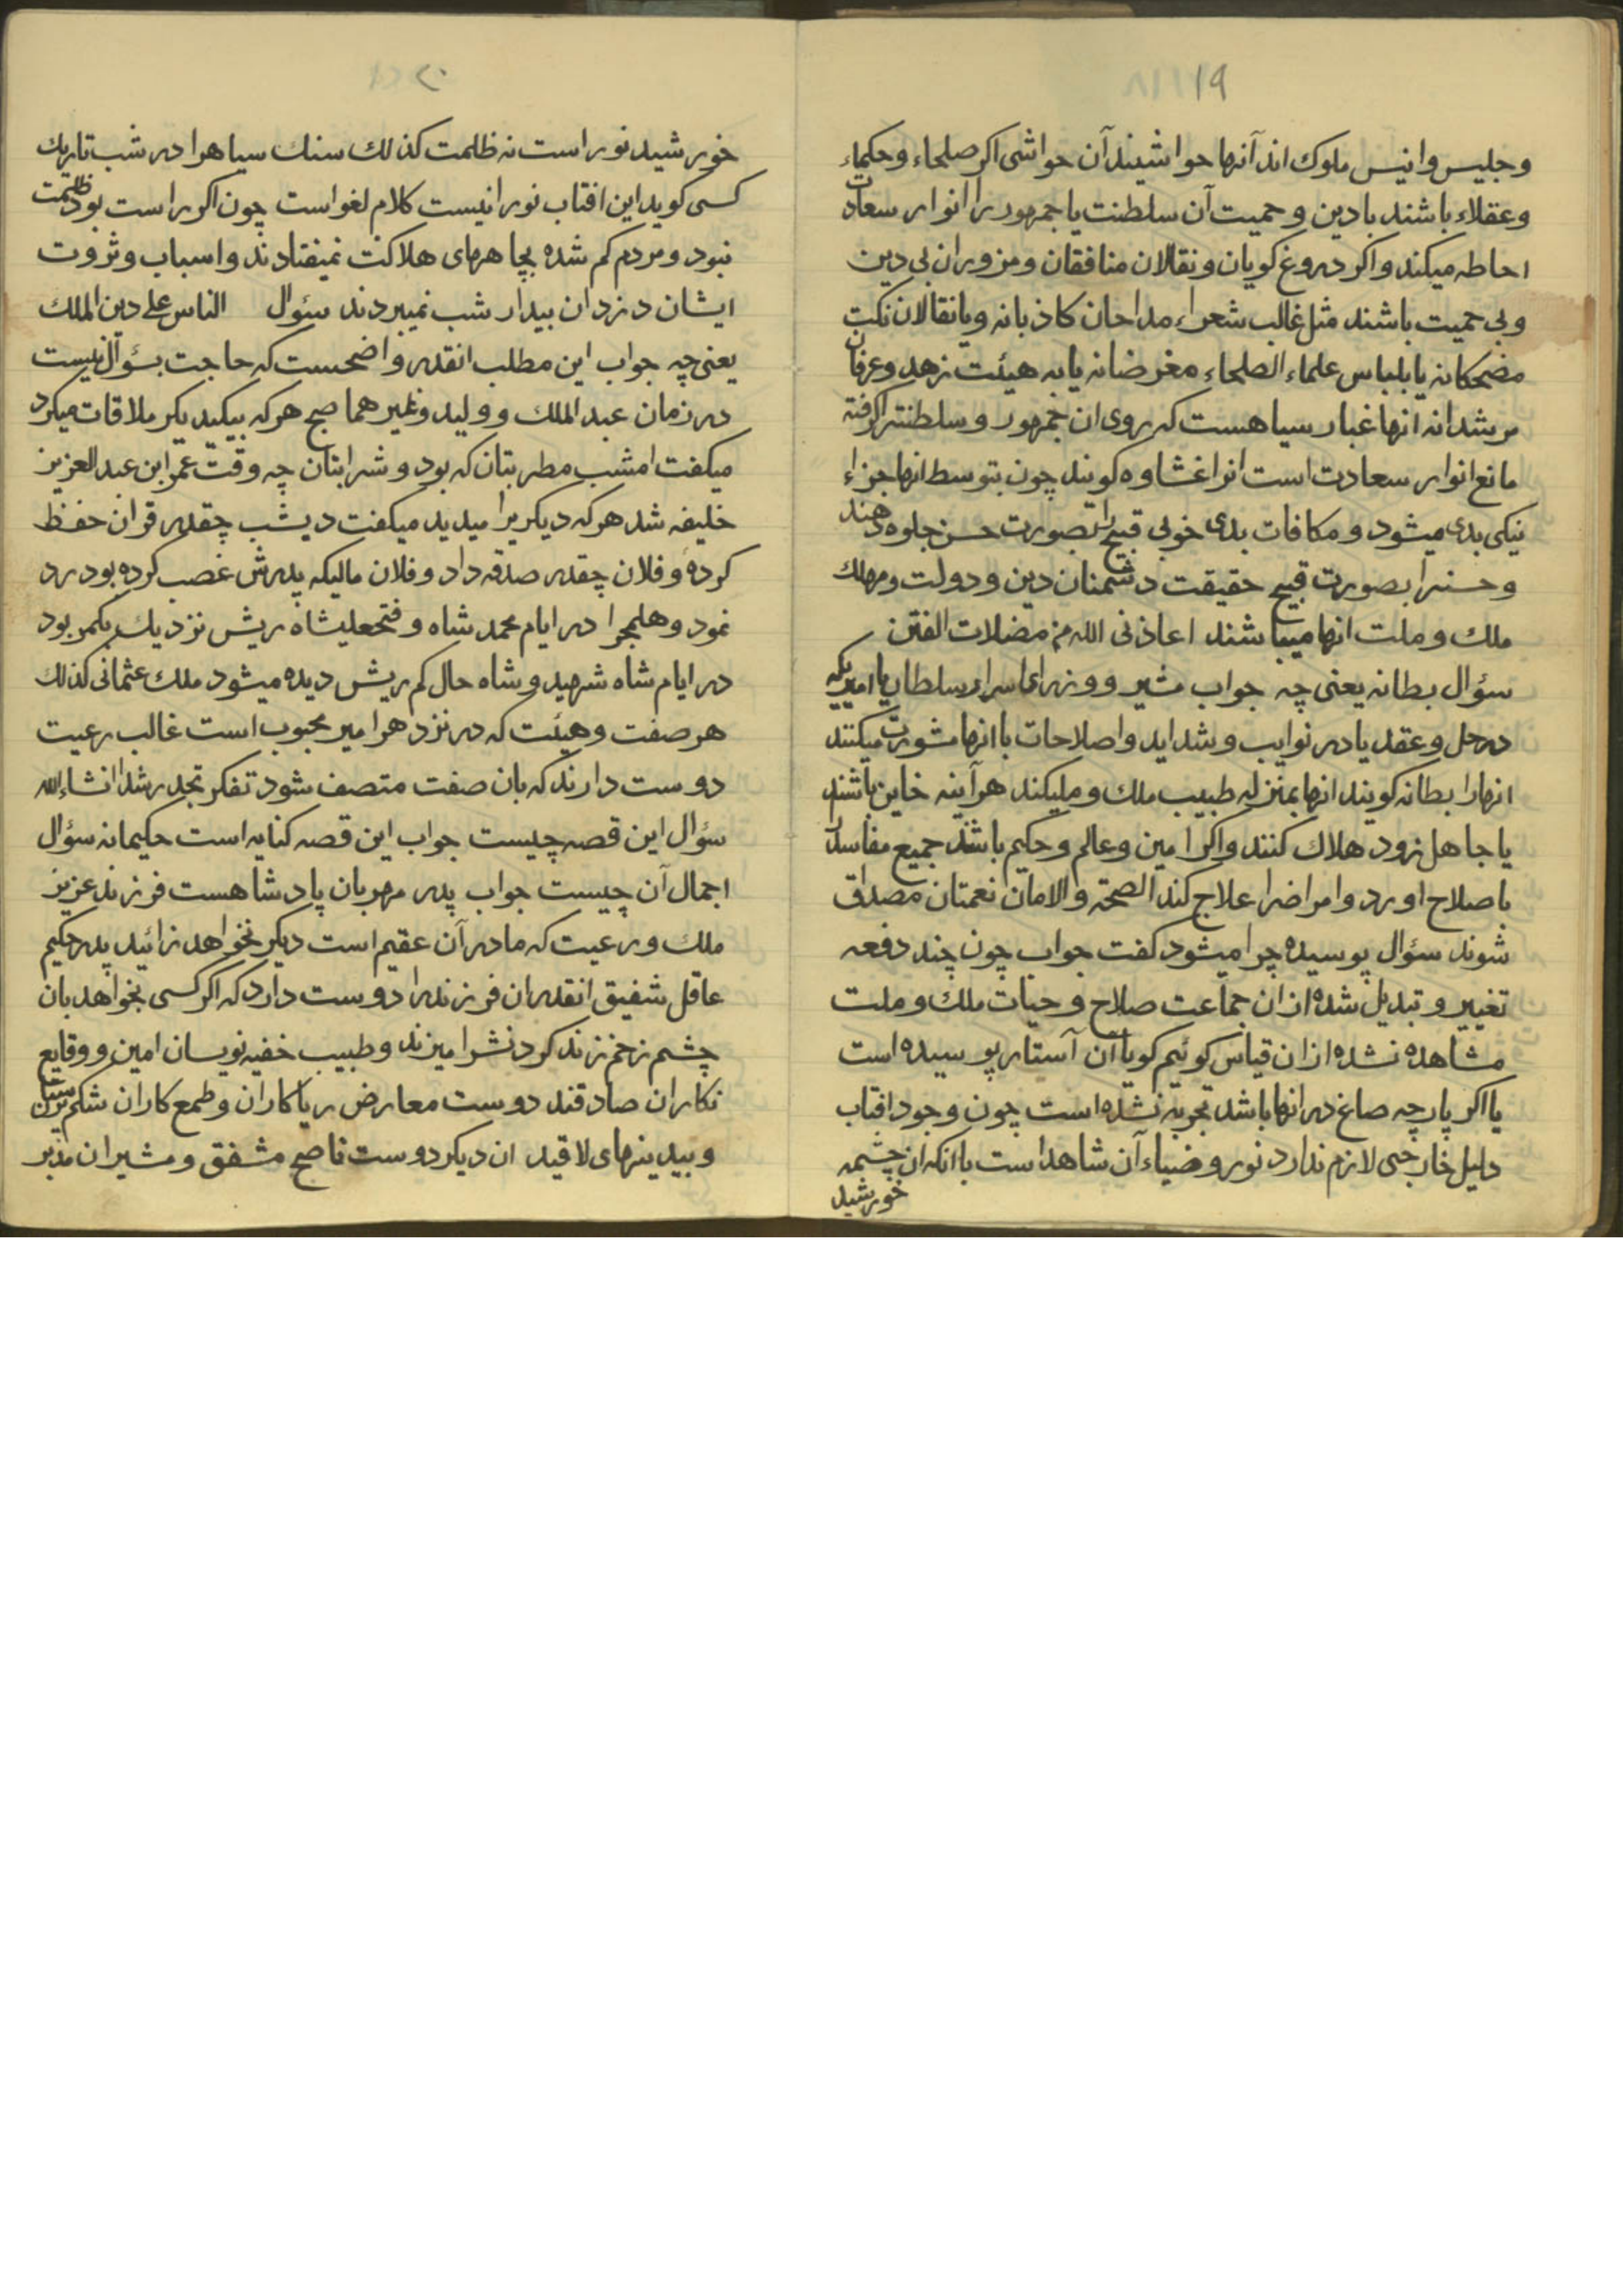 ۱۹
وجلیس وانیس ملوك اند آنها حواشیند آن حواشی اکر صلحاء وحکماء
وعقلاء باشند بادین وحمیت آن سلطنت یا جمهور را انوار سعادت
احاطه میکند واکر دروغ کویان ونقالان منافقان ومزوران بی دین
وبی حمیت باشند مثل غالب شعراء مداحان کاذبانه ویا نقالان نکت
مضحکانه یا بلباس علماء الصلحاء مغرضانه یا به هیئت زهد وعرفان
مرشدانه انها غبار سیاهست که بروی ان جمهور وسلطنترا کرفته
مانع انوار سعادت است انرا غشاوه کویند چون بتوسط انها جزاء
نیکی بدی میشود ومکافات بدی خوبی قبیح را بصورت حسن جلوه دهند
وحسنرا بصورت قبیح حقیقت دشمنان دین ودولت ومهلك
ملك وملت انها میباشند اعاذنی الله من مضلات الفتن
سؤال بطانه یعنی چه جواب مشیر ووزرای اسرار سلطان یا امیریکه
درحل وعقد یا در نوایب وشداید واصلاحات با انها مشورت میکنند
انهارا بطانه کویند انها بمنزله طبیب ملك وملیکند هرآینه خاین باشند
یا جاهل زود هلاك کنند واکر امین وعالم وحکیم باشند جمیع مفاسد را
باصلاح اورد وامراضرا علاج کند الصحة والامان نعمتان مصداق
شوند سؤال پوسیده چرا میشود کفت جواب چون چند دفعه
تغییر وتبدیل شده ازان جماعت صلاح وحیات ملك وملت
مشاهده نشده ازان قیاس کوئیم کویا آن آستار پوسیده است
یا اکر پارچه صاغ در انها باشد تجربه نشده است چون وجود افتاب
دلیل خارجی لازم ندارد نور وضیاء آن شاهد است با انکه ان چشمه
خورشید
۲۰
خورشید نور است نه ظلمت کذلك سنك سیاهرا در شب تاریك
کسی کوید این افتاب نورانیست کلام لغو است چون اکر راست بود ظلمت
نبود ومردم کم شده بچاهرهای هلاکت نمیفتادند واسباب وثروت
ایشان دزدان بیدار شب نمیبردند سؤال الناس علی دین الملك
یعنی چه جواب این مطلب انقدر واضحست که حاجت بسؤال نیست
در زمان عبد الملك وولید وغیرهما صبح هرکه بیکیدیکر ملاقات میکرد
میکفت امشب مطربتان که بود وشرابتان چه وقت عمر ابن عبد العزیز
خلیفه شد هرکه دیکریرا میدید میکفت دیشب چقدر قران حفظ
کرده وفلان چقدر صدقه داد وفلان مالیکه پدرش غصب کرده بود رد
نمود وهلمجرا در ایام محمد شاه وفتحعلیشاه ریش نزدیك بکمر بود
در ایام شاه شهید وشاه حال کم ریش دیده میشود ملك عثمانی کذلك
هر صفت وهیئت که در نزد هر امیر محبوب است غالب رعیت
دوست دارند که بان صفت متصف شود تفکر تجد رشدا انشاءالله
سؤال این قصه چیست جواب این قصه کنایه است حکیمانه سؤال
اجمال آن چیست جواب پدر مهربان پادشاهست فرزند عزیز
ملك ورعیت که مادر آن عقیم است دیکر نخواهد زائید پدر حکیم
عاقل شفیق انقدر ان فرزندرا دوست دارد که اکر کسی بخواهد بان
چشم زخم زند کردنشرا میزند وطبیب خفیه نویسان امین ووقایع
نکاران صادقند دوست معارض ریاکاران وطمع کاران شکم پرستان
وبیدینهای لاقید ان دیکر دوست ناصح مشفق ومشیران مدبر